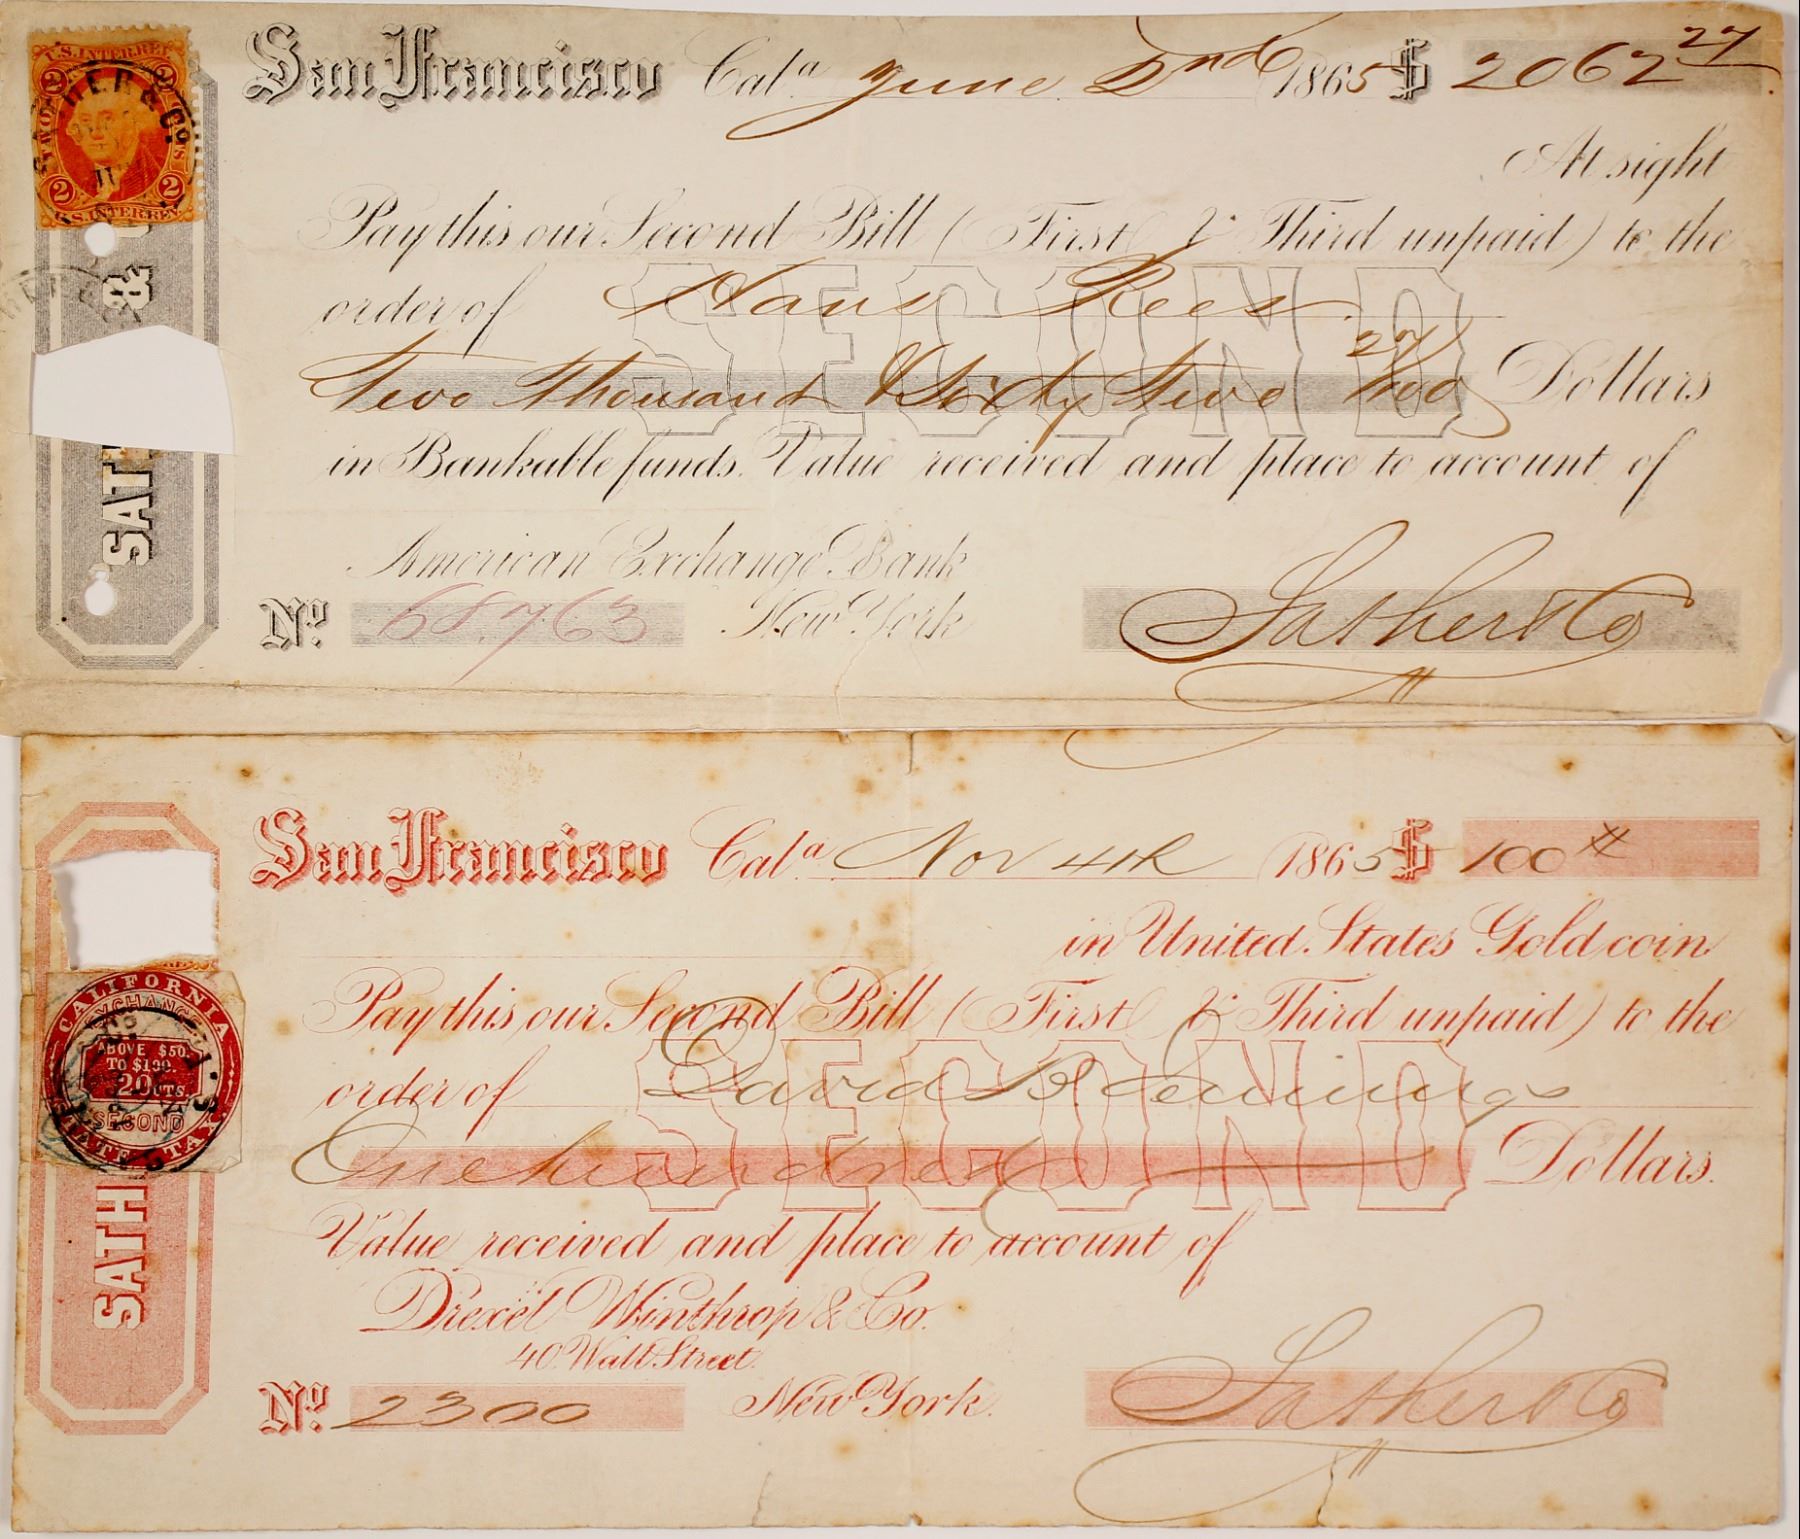 San Francisco Cala June 2nd 1865 $ 2062 27
At sight
Pay this our Second Bill ( First & Third unpaid ) to the
order of Hans Rees
Two Thousand & Sixty Two 27/100 Dollars
in Bankable funds. Value received and place to account of
American Exchange Bank
No. 68.763 New York Sather & Co
SECOND
U.S. INTER. REV.
2 2
TWO CTS.
2 2
U.S. INTER. REV.
SATHER & Co.
&
SATH
San Francisco Cala Nov 4th 1865 $ 100
in United States Gold coin
Pay this our Second Bill ( First & Third unpaid ) to the
order of David B Jennings
One hundred Dollars.
Value received and place to account of
Drexel Winthrop & Co.
40 Wall Street.
No. 2300 New York. Sather & Co
SECOND
CALIFORNIA
EXCHANGE
ABOVE $50.
TO $100.
20 CTS
SECOND
STATE TAX.
SATH